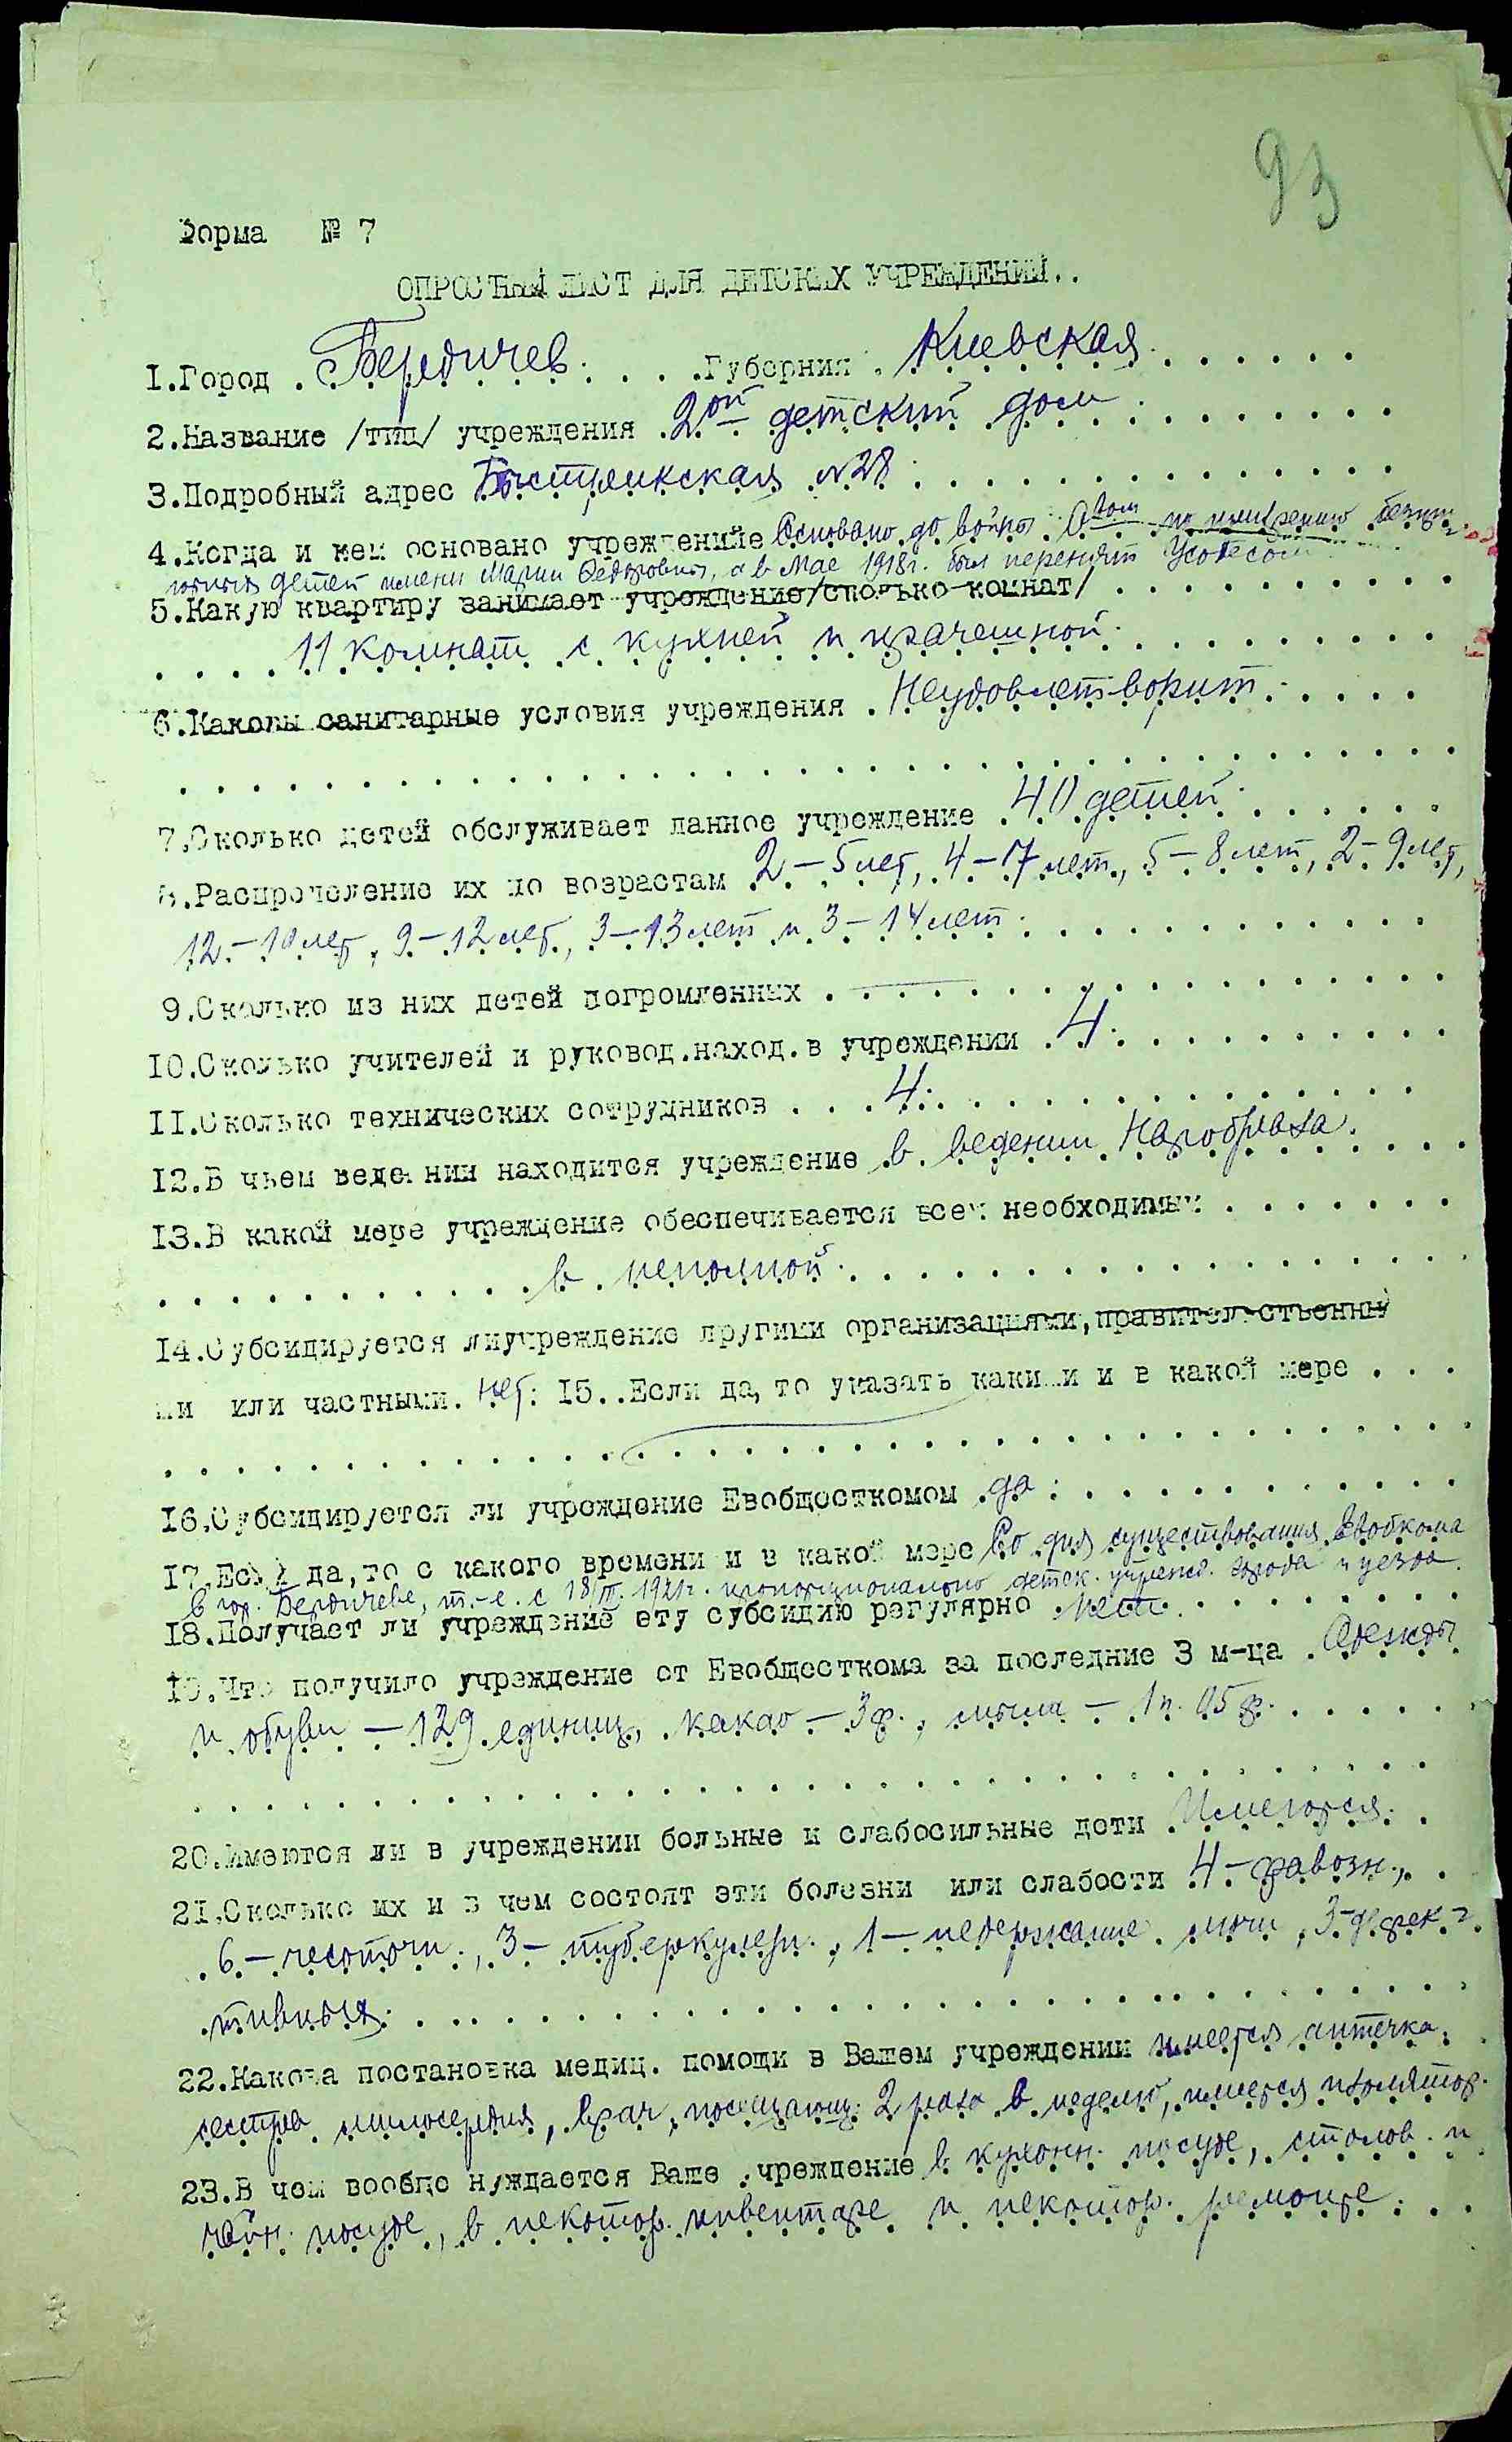 93
Форма № 7
ОПРОСНЫЙ ЛИСТ ДЛЯ ДЕТСКИХ УЧРЕЖДЕНИЙ..
1.Город . Бердичев. . . . .Губерния . Киевская. . . . . . .
2.Название /тип/ учреждения . 2ой детский дом . . . . . . . .
3.Подробный адрес Быстрикская №28 . . . . . . . . . . . . . .
4.Когда и кем основано учреждение Основано до войны. О-вом по призрению
детей имени Марии Федоровны, а в Мае 1918г. был перенят Усобесом
5.Какую квартиру занимает учреждение/сколько комнат/ . . . . . . . . .
. . . . 11 комнат с кухней и прачешной. . . . . . . . . .
6.Каковы санитарные условия учреждения . Неудовлетворит. . . . .
. . . . . . . . . . . . . . . . . . . . . . . . . . . . . . . . . .
7.Сколько детей обслуживает данное учреждение . 40 детей. . . . . . .
8.Распределение их по возрастам 2 – 5 лет, 4 – 7 лет., 5 – 8 лет, 2 – 9 лет,
12 – 10 лет, 9 – 12 лет, 3 – 13 лет и 3 – 14 лет. . . . . . . . . . . .
9.Сколько из них детей погромленных . — . . . . . . . . . . . . . . .
10.Сколько учителей и руковод.наход.в учреждении . 4. . . . . . . . . .
11.Сколько технических сотрудников . . . 4. . . . . . . . . . . . . .
12.В чьем ведении находится учреждение в ведении Наробраза. . . . .
13.В какой мере учреждение обеспечивается всем необходимым . . . . . . .
. . . . . . . . . . . в неполной. . . . . . . . . . . . . . . . . .
14.Субсидируется лиучреждение другими организациями,правительственны
ми или частными. Нет: 15..Если да, то указать какими и в какой мере . . .
. . . . . . . . . . . . . . . . . . . . . . . . . . . . . . . . . . . .
16.Субсидируется ли учреждение Евобщесткомом .да : . . . . . . . . . . .
17.Если да,то с какого времени и в какой мере Со дня существования Евобкома
в гор. Бердичеве, т.-е. с 1921г. пропорционально детск. учрежд. города и уезда.
18.Получает ли учреждение эту субсидию регулярно . . . . . . . . .
19.Что получило учреждение от Евобщесткома за последние 3 м-ца . Одежды
и обуви – 129 единиц, какао – 3ф., мыла – 1п. 05ф. . . . . . .
. . . . . . . . . . . . . . . . . . . . . . . . . . . . . . . . . .
20.Имеются ли в учреждении больные и слабосильные дети . Имеются. .
21.Сколько их и в чем состоят эти болезни или слабости 4 – фавозн., .
. 6 – чесоточн., 3 – туберкулезн., 1 – недержание мочи, 3 – дефек-
тивных. . . . . . . . . . . . . . . . . . . . . . . . . . . . . . .
22.Какова постановка медиц. помощи в Вашем учреждении имеется аптечка,
сестра милосердия, врач, посещающ. 2 раза в неделю, имеется изолятор.
23.В чем вообще нуждается Ваше учреждение в кухонн. посуде, столов. и
чайн. посуде, в некотор. инвентаре и некотор. ремонте. . .